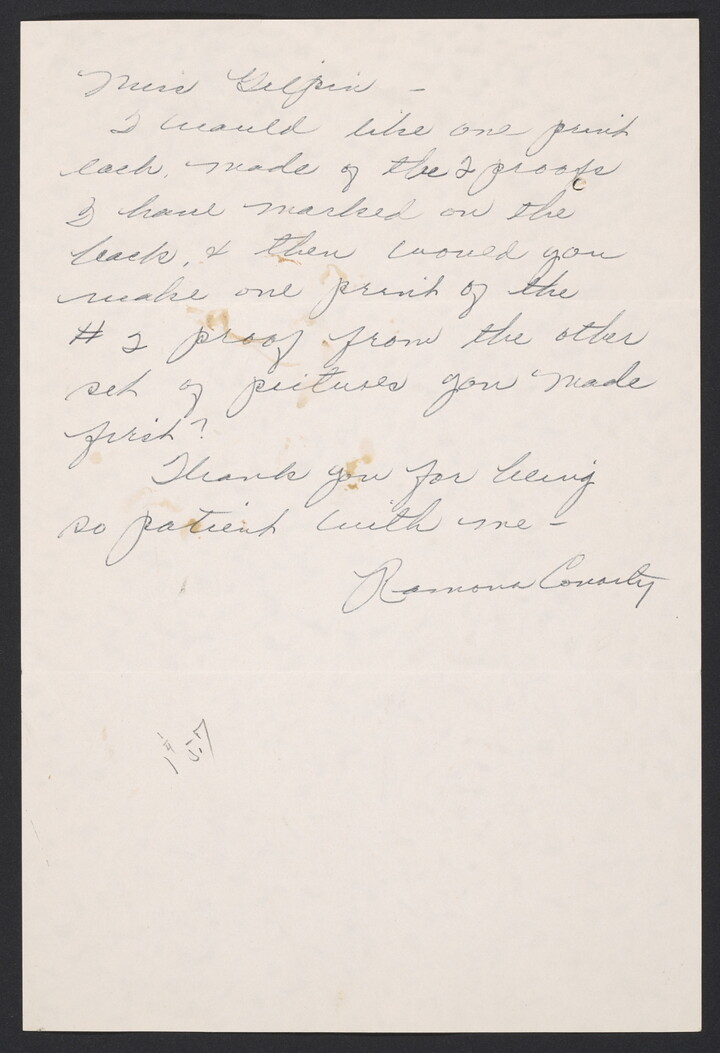 Miss Gilpin —
I would like one print
each, made of the 2 proofs
I have marked on the
back, & then would you
make one print of the
# 2 proof from the other
set of pictures you made
first?
Thank you for being
so patient with me —
Ramona